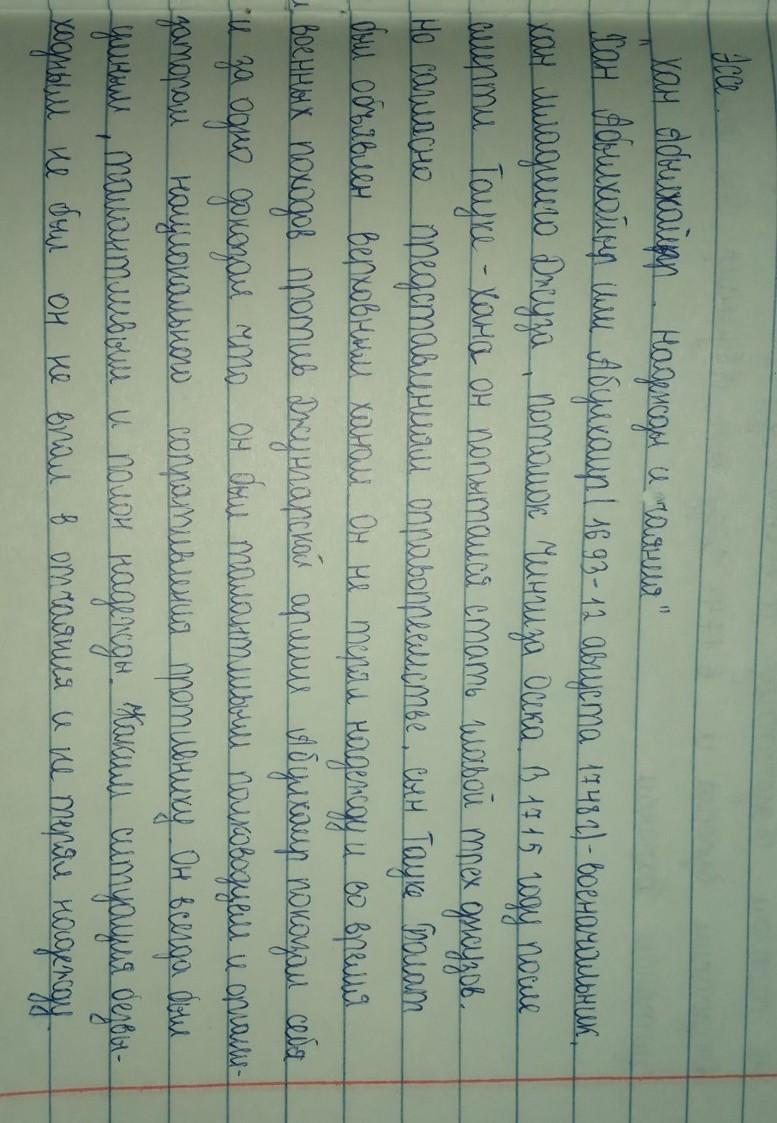 Эссе.
"Хан Абылхайыр. Надежды и чаяния"
Хан Абылхайыр или Абулхаир (1693-12 августа 1748г)-военачальник,
хан младшего Джуза, потомок Чингиза Осека. В 1715 году после
смерти Тауке-Хана он попытался стать главой трех джузов.
Но согласно представлениям оправопреемстве, сын Тауке Болат
был объявлен верховным ханом Он не терял надежду и во время
военных походов против Джунгарской армии Абулхаир показал себя
и за одно доказал что он был талантливым полководцем и органи-
затором национального сопративления противнику. Он всегда был
умным, талантливым и полон надежды. Какими ситуация безвы-
ходным не был он не впал в отчаяния и не терял надежду.